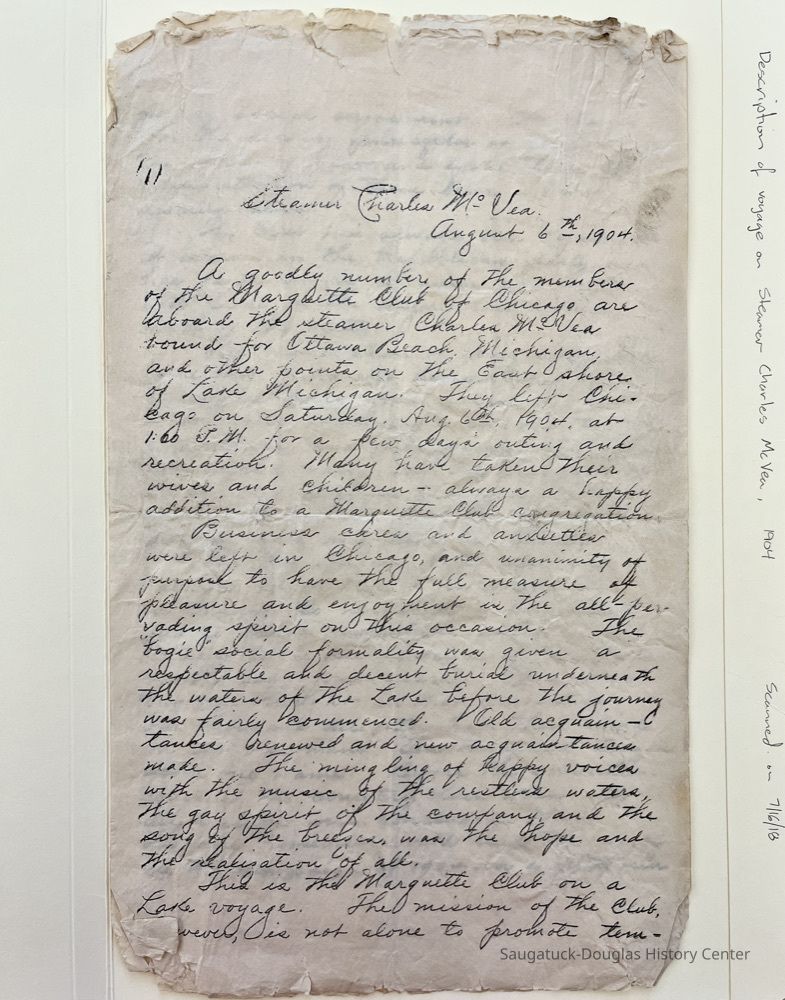 "1"
Steamer Charles Mc Vea.
August 6th, 1904.
A goodly number of the members
of the Marquette Club of Chicago are
aboard the steamer Charles Mc Vea
bound for Ottawa Beach, Michigan,
and other points on the East shore
of Lake Michigan. They left Chi-
cago on Saturday, Aug. 6th, 1904, at
1:00 P.M. for a few days outing and
recreation. Many have taken their
wives and children - always a happy
addition to a Marquette Club congregation.
Business cares and anxieties
were left in Chicago, and unanimity of
purpose to have the full measure of
pleasure and enjoyment is the all-per-
vading spirit on this occasion. The
"bogie" social formality was given a
respectable and decent burial underneath
the waters of the Lake before the journey
was fairly commenced. Old acquain-
tances renewed and new acquaintances
make. The mingling of happy voices
with the music of the restless waters,
the gay spirit of the company, and the
song of the breezes, was the hope and
the realization of all.
This is the Marquette Club on a
Lake voyage. The mission of the Club,
wever, is not alone to promote tem-
Description of voyage on Steamer Charles McVea, 1904
Scanned on 7/16/18
Saugatuck-Douglas History Center